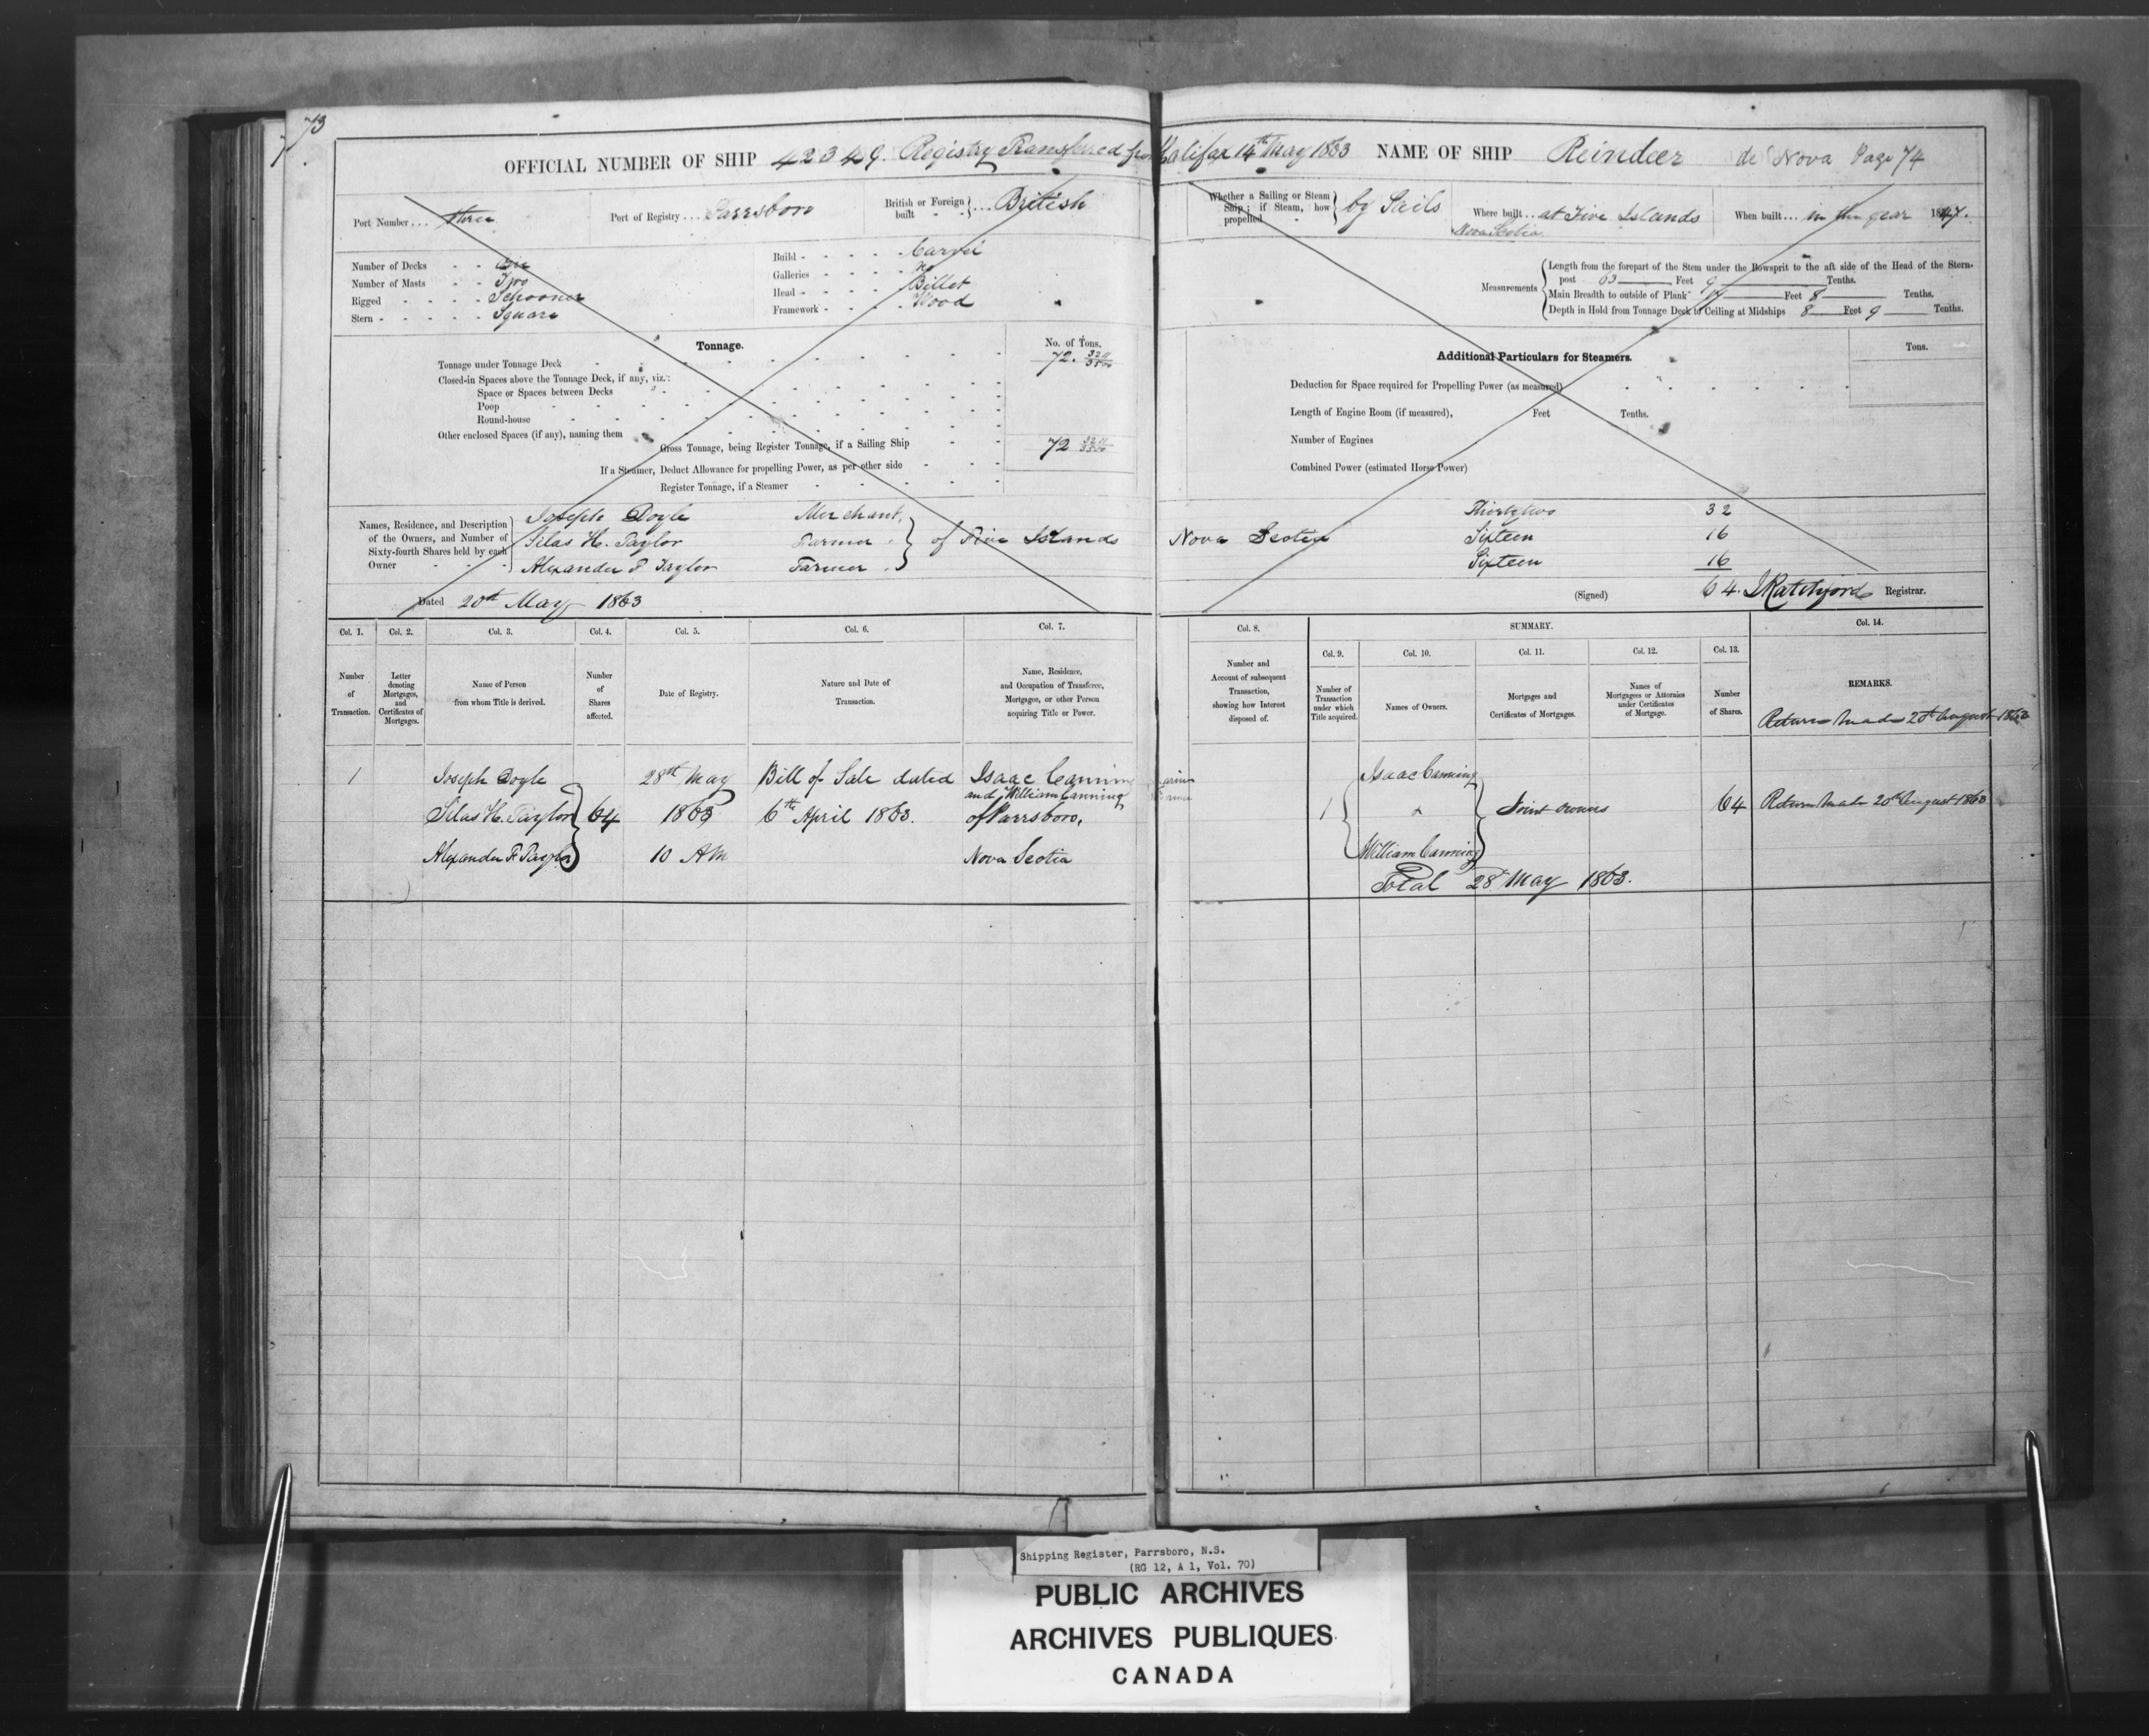 73
OFFICIAL NUMBER OF SHIP 42349. Registry Transferred from Halifax 14th May 1863 NAME OF SHIP Reindeer de Nova Page 74
Port Number . . . three Port of Registry . . . Parrsboro British or Foreign built - - } . . . British
Whether a Sailing or Steam Ship; if Steam, how propelled - } by Sails Where built . . . at Five Islands Nova Scotia When built . . . in the year 1847.
Number of Decks - - One
Number of Masts - - Two
Rigged - - - - Schooner
Stern - - - - - Square
Build - - - - - Carvel
Galleries - - - - No
Head - - - - - Billet
Framework - - - - Wood
Measurements
Length from the forepart of the Stem under the Bowsprit to the aft side of the Head of the Stern-
post - 63 Feet 9 Tenths.
Main Breadth to outside of Plank Feet 8 Tenths.
Depth in Hold from Tonnage Deck to Ceiling at Midships 8 Feet 9 Tenths.
Tonnage.
No. of Tons.
Tonnage under Tonnage Deck 72.
Closed-in Spaces above the Tonnage Deck, if any, viz.:
Space or Spaces between Decks
Poop
Round-house
Other enclosed Spaces (if any), naming them
Gross Tonnage, being Register Tonnage, if a Sailing Ship 72
If a Steamer, Deduct Allowance for propelling Power, as per other side
Register Tonnage, if a Steamer
Additional Particulars for Steamers.
Tons.
Deduction for Space required for Propelling Power (as measured)
Length of Engine Room (if measured), Feet Tenths.
Number of Engines
Combined Power (estimated Horse Power)
Names, Residence, and Description of the Owners, and Number of Sixty-fourth Shares held by each Owner
Joseph Doyle Merchant, Thirty two 32
Silas H. Taylor Farmer of Five Islands Nova Scotia Sixteen 16
Alexander F. Taylor Farmer Sixteen 16
Dated 20th May 1863 (Signed) 64. Ratchford Registrar.
Col. 1. Col. 2. Col. 3. Col. 4. Col. 5. Col. 6. Col. 7. Col. 8. SUMMARY. Col. 14.
Col. 9. Col. 10. Col. 11. Col. 12. Col. 13.
Number of Transaction.
Letter denoting Mortgages, and Certificates of Mortgages.
Name of Person from whom Title is derived.
Number of Shares affected.
Date of Registry.
Nature and Date of Transaction.
Name, Residence, and Occupation of Transferee, Mortgagee, or other Person acquiring Title or Power.
Number and Account of subsequent Transaction, showing how Interest disposed of.
Number of Transaction under which Title acquired.
Names of Owners.
Mortgages and Certificates of Mortgages.
Names of Mortgagees or Attornies under Certificates of Mortgage.
Number of Shares.
REMARKS.
Return Made 20th August 1863
1 Joseph Doyle 28th May Bill of Sale dated Isaac Canning Isaac Canning
and William Canning
Silas H. Taylor 64 1863 6th April 1863. of Parrsboro, 1 Joint Owners 64 Return Made 20th August 1863
Alexander F. Taylor 10 AM Nova Scotia William Canning
Total 28 May 1863.
Shipping Register, Parrsboro, N.S.
(RG 12, A 1, Vol. 70)
PUBLIC ARCHIVES
ARCHIVES PUBLIQUES
CANADA